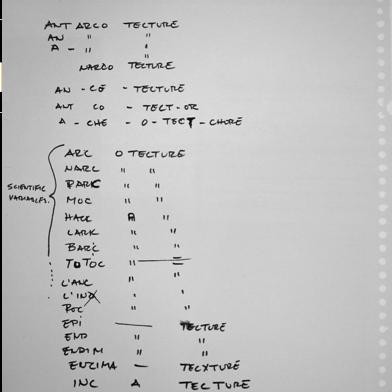 ANT ARCO TECTURE
AN " "
A - " "
NARCO TECTURE
AN - CE - TECTURE
ANT CO - TECT - OR
A - CHE - O - TECT - CHORE
ARC O TECTURE
NARC " "
PARK " "
MOC " "
HACK A "
LARK " "
BARC " "
SCIENTIFIC VARIABLES.
TOTOC " "
L'ANC " "
L'IN " "
POC " "
EPI — TECTURE
END " "
ENDIM " "
ENZIMA — TECXTURE
INC A TECTURE